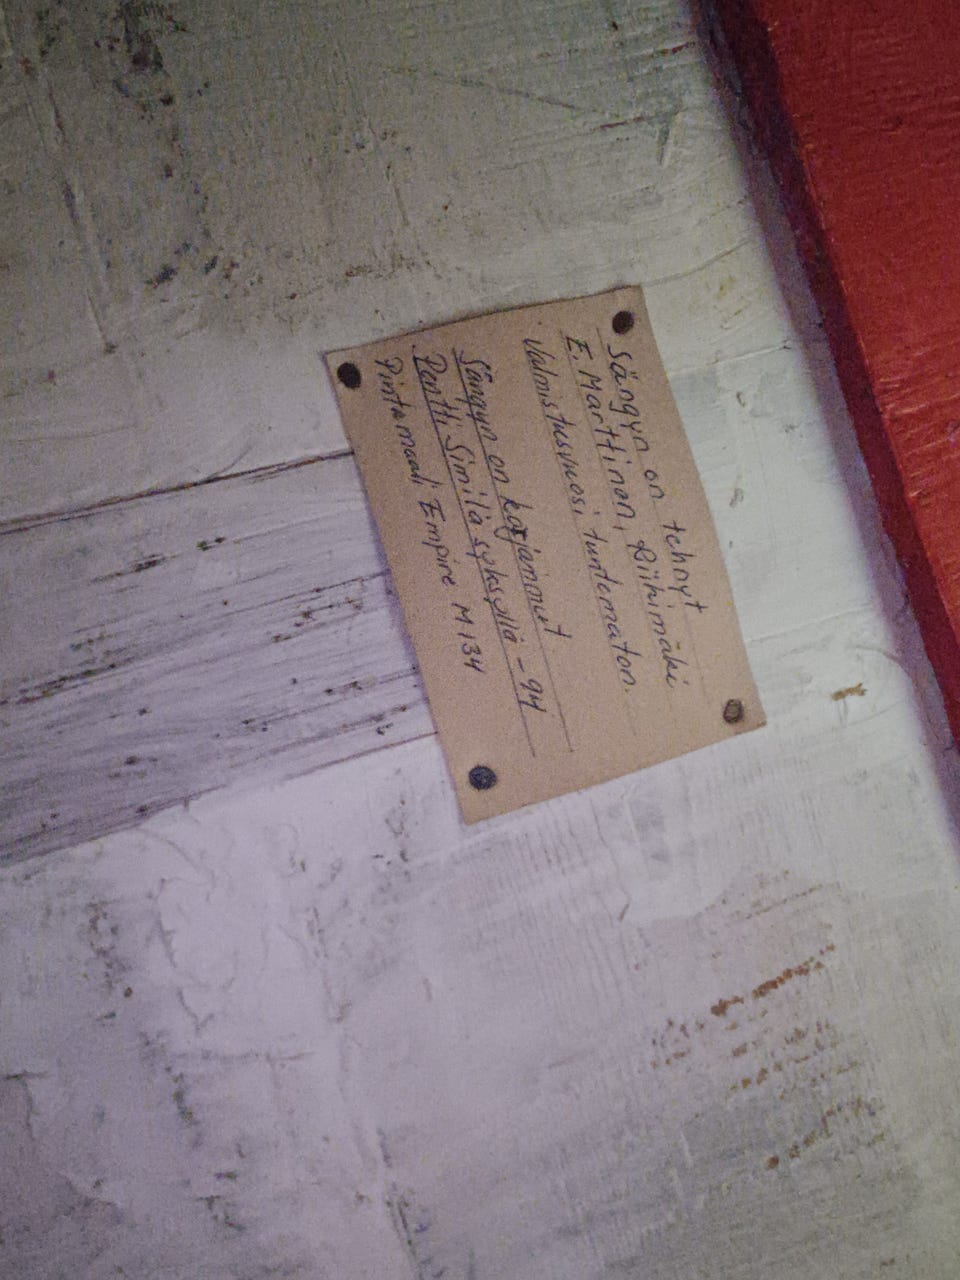 Sängyn on tehnyt
E. Marttinen, Riihimäki
Valmistusvuosi tuntematon.
Sängyn on korjannut
Pentti Similä syksyllä -94
Pintamaali Empire M134